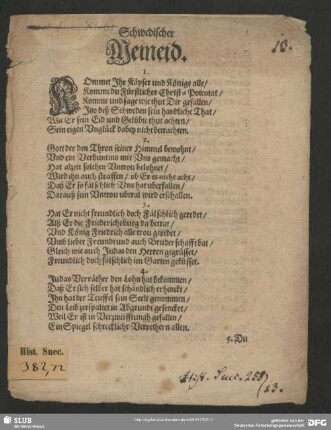 Schwedischer
Meineid.
18.
1.
KOmmet Ihr Käyser und Könige alle/
Kommt du Fürstlicher Christ-Potentat/
Komme und sage wie thut Dir gefallen/
Ins deß Schweden sein handliche That/
Wie Er sein Eid und Gelübte thut achten/
Sein eigen Unglück dabey nicht betrachten.
2.
Gott der den Thron seiner Himmel bewohnt/
Und ein Verbuntnus mit Uns gemacht/
Hat alzeit solchen Untreu belohnet/
Wird ihn auch straffen/ ob Er es nicht acht/
Daß Er so fälschlich Uns hat uberfallen/
Darauß sein Untreu uberal wird erschallen.
3.
Hat Er nicht freundlich doch Fälschlich geredet/
Alß Er die Friederichsburg da betrat/
Und König Friedrich alle treu geredet/
Umb lieber Freund und auch Bruder
Gleich wie auch Judas den Herren gegrüsset/
Freundlich doch fälschlich im Garten geküsset.
4.
Judas Verräther den Lohn hat bekommen/
Daß Er sich selber hat schändlich erhenckt/
Ihn hat der Teuffel sein Seele genommen/
Den Leib zerspaltet in Abgrund gesencket/
Weil Er ist in Verzweifflungh gefallen/
Ein Spiegel schrecklichs Verrethern allen.
5. Du
Hist. Suec.
182,22
Hist. Suec. 258
13.
SLUB
DFG